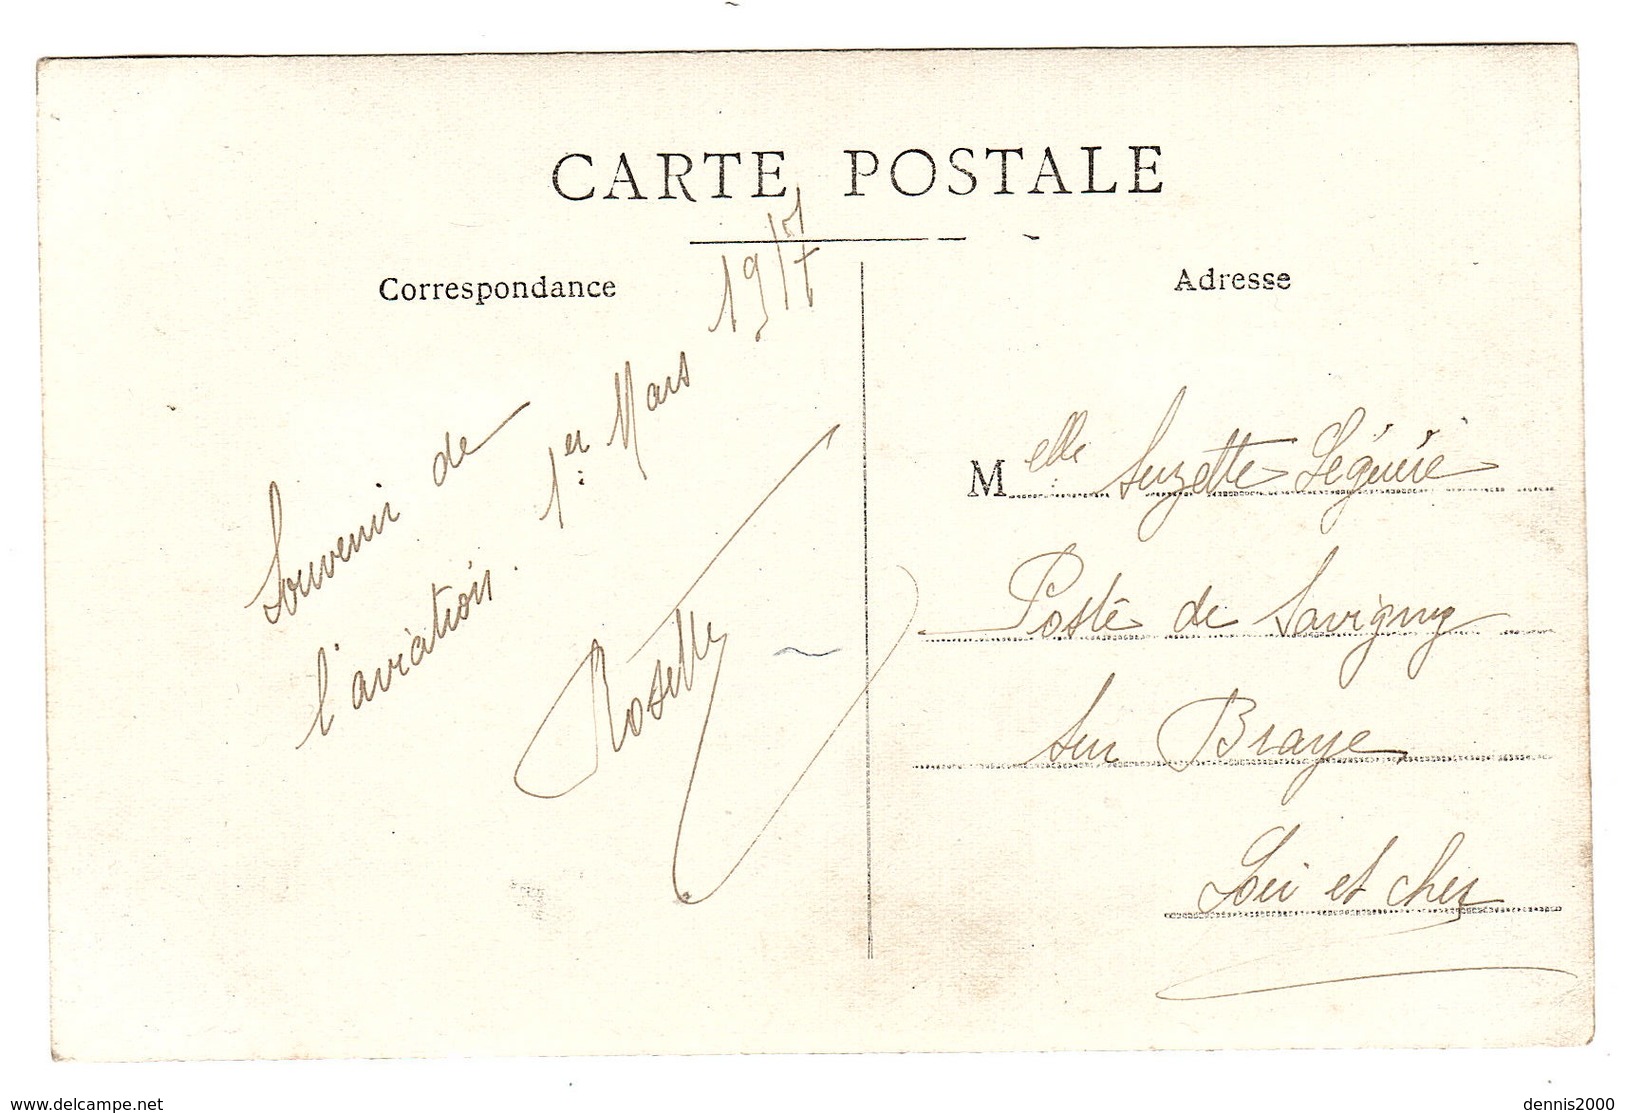 CARTE POSTALE
Correspondance
Adresse
Souvenir de
l'aviation. 1er Mars 1917
Roselle
Melle Suzette Séguiré
Poste de Savigny
sur Braye
Loir et cher
www.delcampe.net
dennis2000